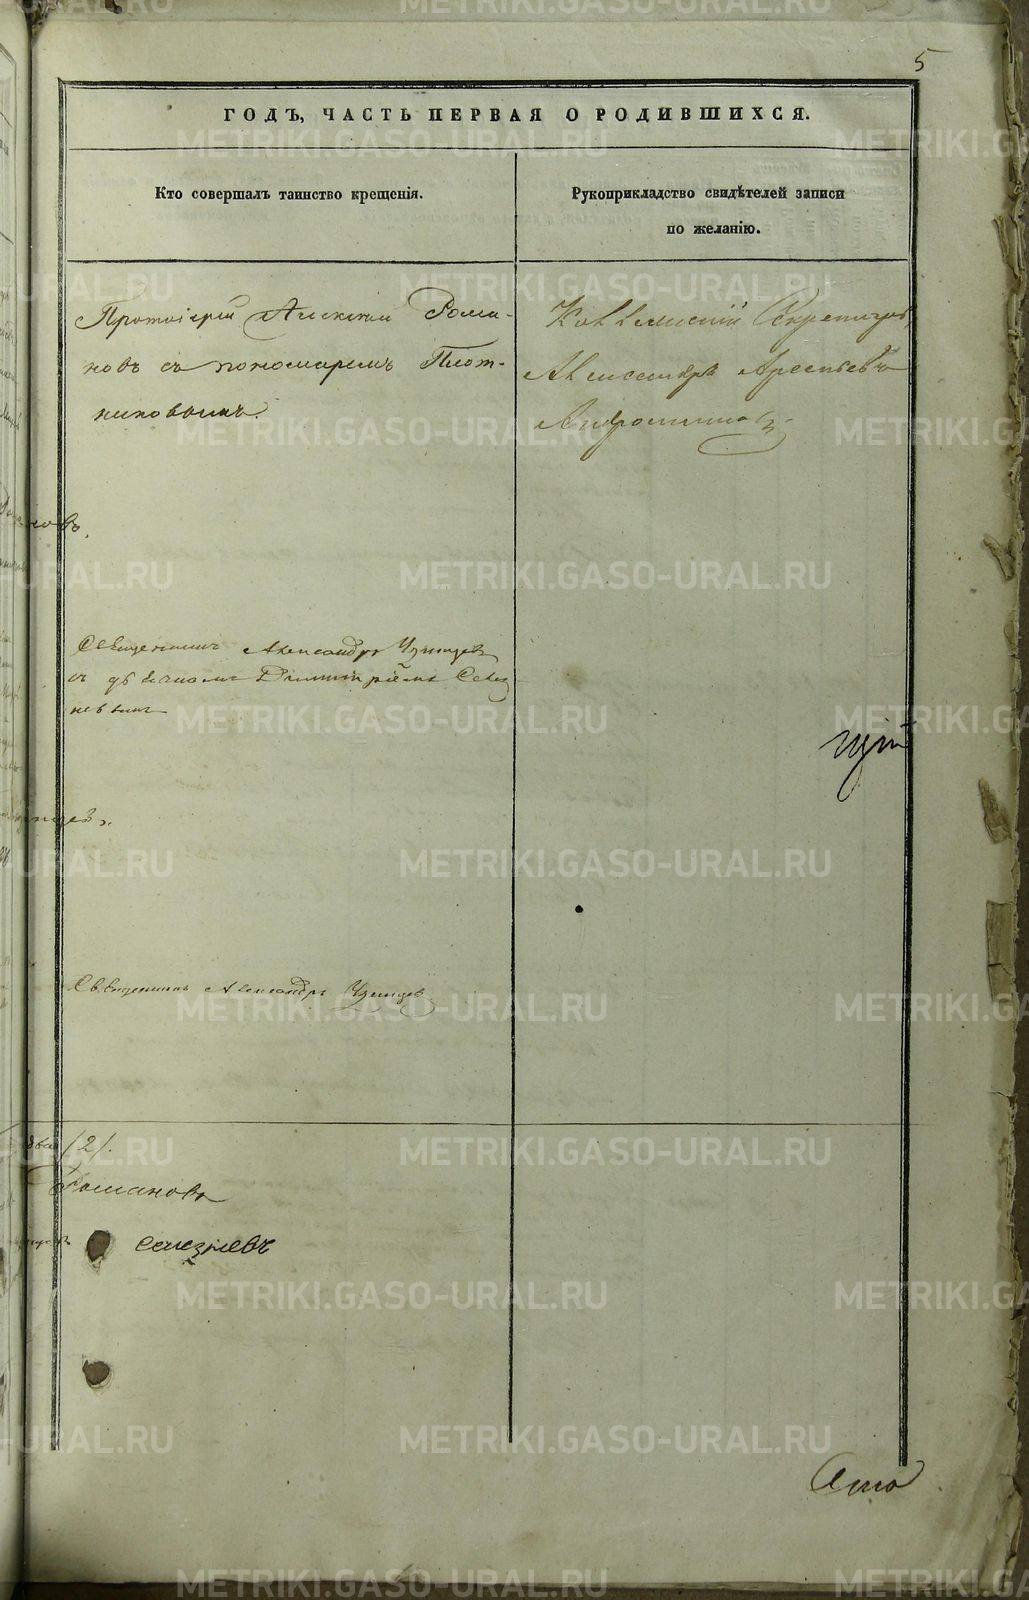 5
ГОДЪ, ЧАСТЬ ПЕРВАЯ О РОДИВШИХСЯ.
Кто совершалъ таинство крещенія.
Рукоприкладство свидѣтелей записи
по желанію.
Протоіерей Алексѣй Рома-
новъ съ пономаремъ Плот-
никовымъ.
Коллежскій Секретарь
Александръ Арсеньевъ
новъ.
Священникъ Александръ
съ діакономъ Димитріемъ Селез
невымъ
Священникъ Александръ
два /2/.
Романовъ
Селезневъ
METRIKI.GASO-URAL.RU